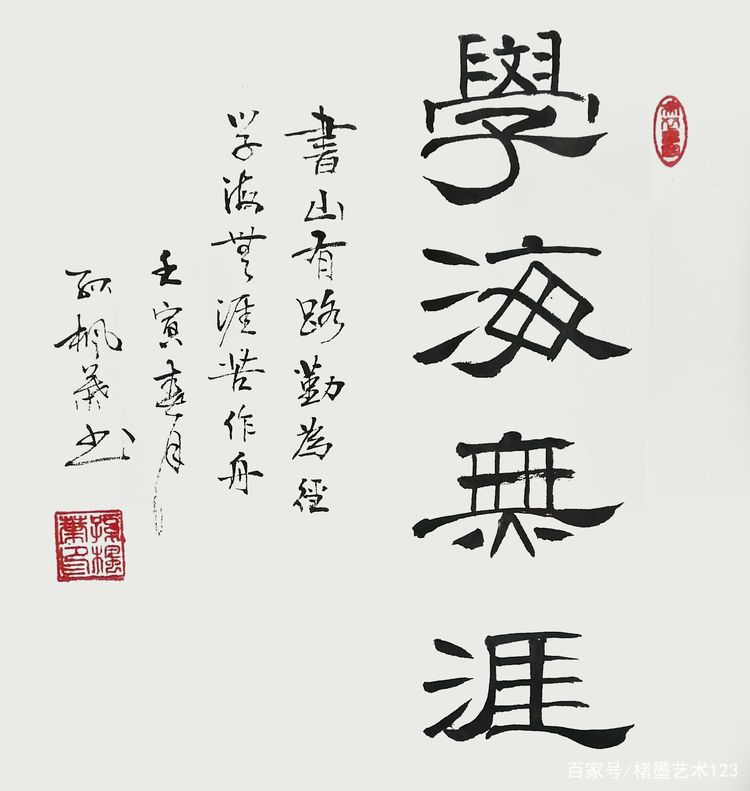 學海無涯
書山有路勤為徑
学海無涯苦作舟
壬寅春月
孙楓葉书
孫楓葉印
百家号/楮墨艺术123